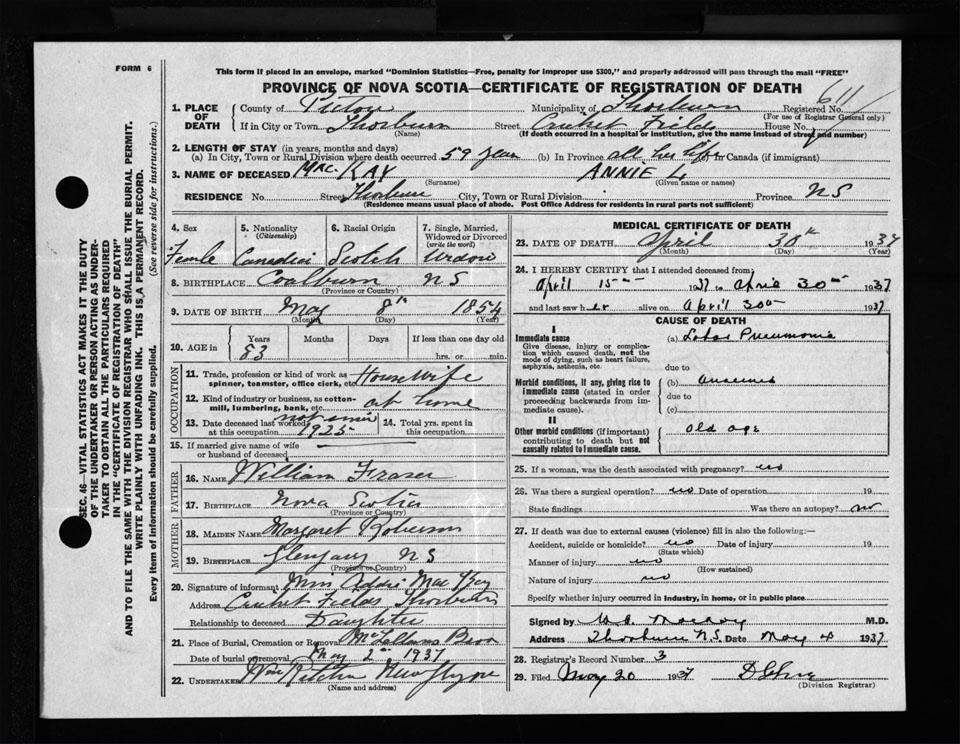 FORM 6
This form if placed in an envelope, marked "Dominion Statistics—Free, penalty for improper use $300," and properly addressed will pass through the mail "FREE"
PROVINCE OF NOVA SCOTIA—CERTIFICATE OF REGISTRATION OF DEATH
611
1. PLACE OF DEATH County of Pictou Municipality of Thorburn Registered No.
(For use of Registrar General only)
If in City or Town Thorburn Street Cricket Fields House No.
(Name) (If death occurred in a hospital or institution, give the name instead of street and number)
2. LENGTH OF STAY (in years, months and days)
(a) In City, Town or Rural Division where death occurred 59 years (b) In Province all her life in Canada (if immigrant)
3. NAME OF DECEASED MAC-KAY ANNIE L
(Surname) (Given name or names)
RESIDENCE No. Street Thorburn City, Town or Rural Division Province NS
(Residence means usual place of abode. Post Office Address for residents in rural parts not sufficient)
4. Sex 5. Nationality (Citizenship) 6. Racial Origin 7. Single, Married, Widowed or Divorced (write the word)
Female Canadian Scotch Widow
8. BIRTHPLACE Coalburn NS
(Province or Country)
9. DATE OF BIRTH May 8th 1854
(Month) (Day) (Year)
10. AGE in Years Months Days If less than one day old
83 hrs. or min.
OCCUPATION
11. Trade, profession or kind of work as spinner, teamster, office clerk, etc. Housewife
12. Kind of industry or business, as cotton-mill, lumbering, bank, etc. at home
13. Date deceased last worked at this occupation not since 1925 14. Total yrs. spent in this occupation
15. If married give name of wife or husband of deceased
FATHER
16. NAME William Fraser
17. BIRTHPLACE Nova Scotia
(Province or Country)
MOTHER
18. MAIDEN NAME Margaret Robertson
19. BIRTHPLACE Glengarry NS
(Province or Country)
20. Signature of informant Miss Addie MacKay
Address Cricket Fields Thorburn
Relationship to deceased Daughter
21. Place of Burial, Cremation or Removal McLellans Brook
Date of burial or removal May 2nd 1937
22. UNDERTAKER Wm Ritchie New Glasgow
(Name and address)
MEDICAL CERTIFICATE OF DEATH
23. DATE OF DEATH April 30th 1937
(Month) (Day) (Year)
24. I HEREBY CERTIFY that I attended deceased from
April 15 1937 to April 30 1937
and last saw her alive on April 30 1937
CAUSE OF DEATH
I
Immediate cause
Give disease, injury or complication which caused death, not the mode of dying, such as heart failure, asphyxia, asthenia, etc.
(a) Lobar Pneumonia
due to
Morbid conditions, if any, giving rise to immediate cause (stated in order proceeding backwards from immediate cause).
(b)
due to
(c)
II
Other morbid conditions (if important) contributing to death but not causally related to immediate cause.
old age
25. If a woman, was the death associated with pregnancy? no
26. Was there a surgical operation? no Date of operation 19
State findings Was there an autopsy? no
27. If death was due to external causes (violence) fill in also the following:—
Accident, suicide or homicide? no Date of injury 19
(State which)
Manner of injury no
(How sustained)
Nature of injury no
Specify whether injury occurred in industry, in home, or in public place
Signed by M.D.
Address Thorburn N.S. Date May 4 1937
28. Registrar's Record Number 3
29. Filed May 20 1937
(Division Registrar)
SEC. 46—VITAL STATISTICS ACT MAKES IT THE DUTY
OF THE UNDERTAKER OR PERSON ACTING AS UNDER-
TAKER TO OBTAIN ALL THE PARTICULARS REQUIRED
IN THE "CERTIFICATE OF REGISTRATION OF DEATH"
AND TO FILE THE SAME WITH THE DIVISION REGISTRAR WHO SHALL ISSUE THE BURIAL PERMIT.
WRITE PLAINLY WITH UNFADING INK. THIS IS A PERMANENT RECORD.
Every item of information should be carefully supplied. (See reverse side for instructions.)